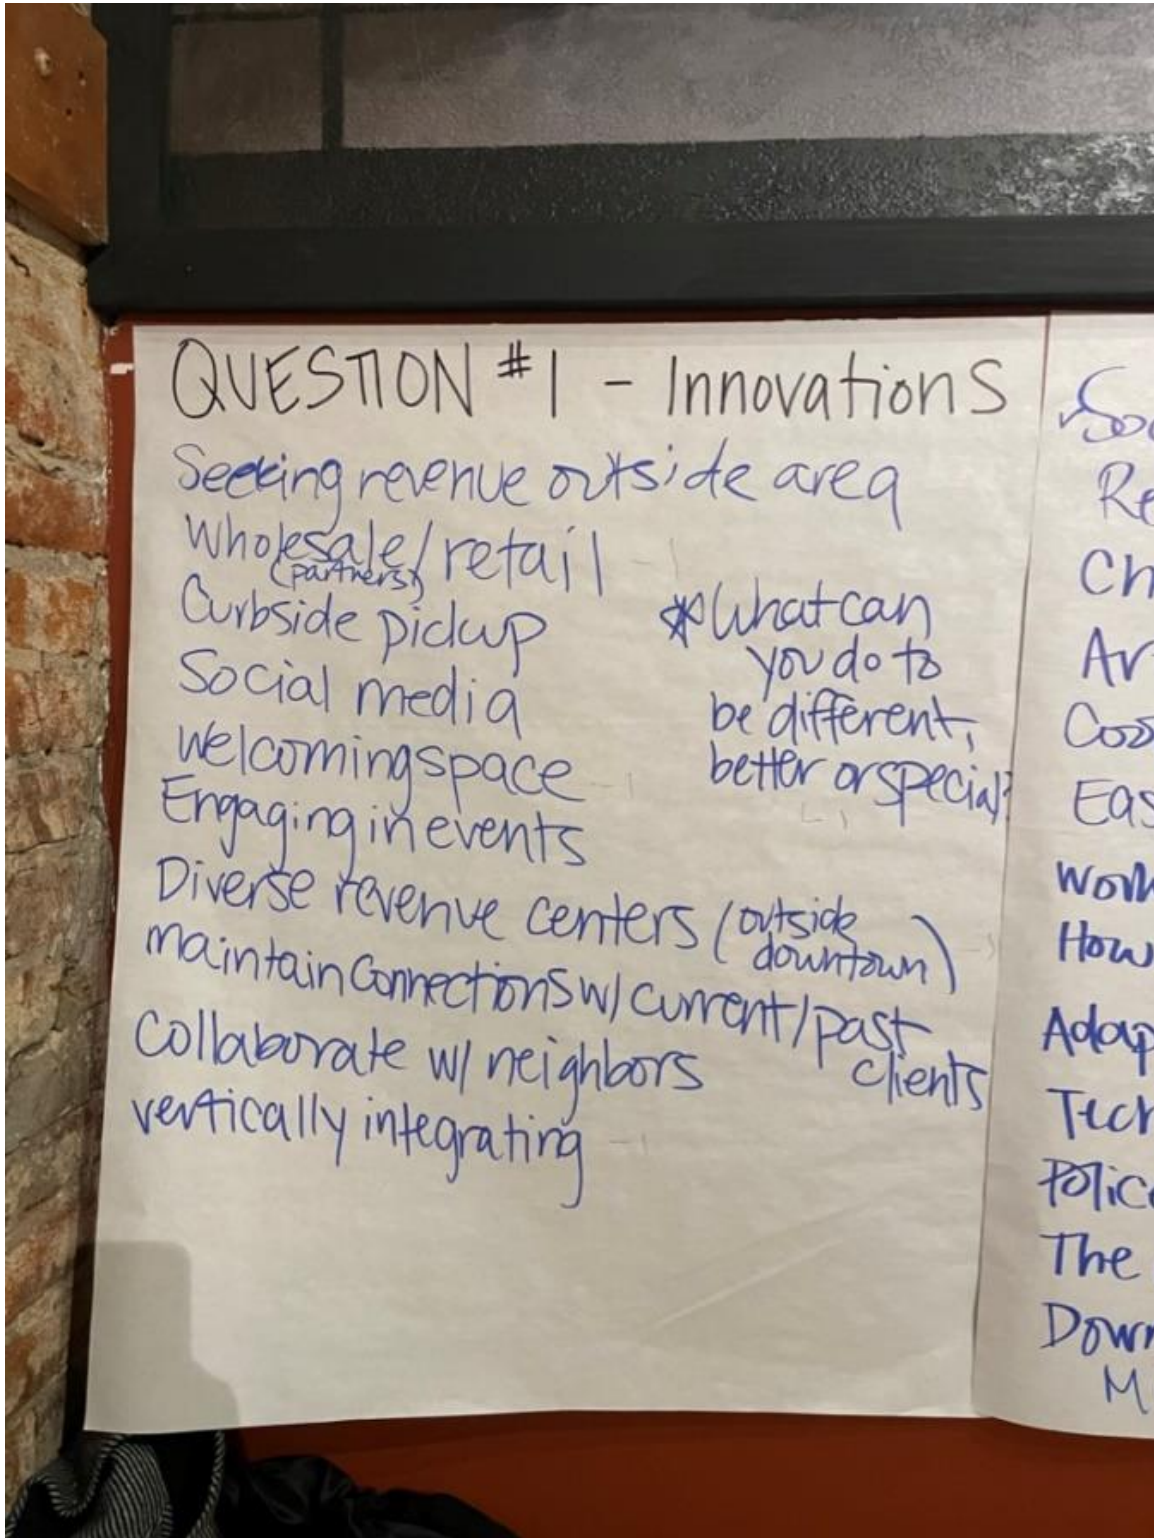 QUESTION #1 - Innovations
Seeking revenue outside area
Wholesale/retail
(partners)
Curbside pickup
Social media
Welcoming space
Engaging in events
Diverse revenue centers (outside
downtown)
maintain connections w/ current/past
clients
Collaborate w/ neighbors
vertically integrating
*What can
you do to
be different,
better or special?
Re
Ch
Ar
Eas
How
Adap
Tech
Police
The
Down
M